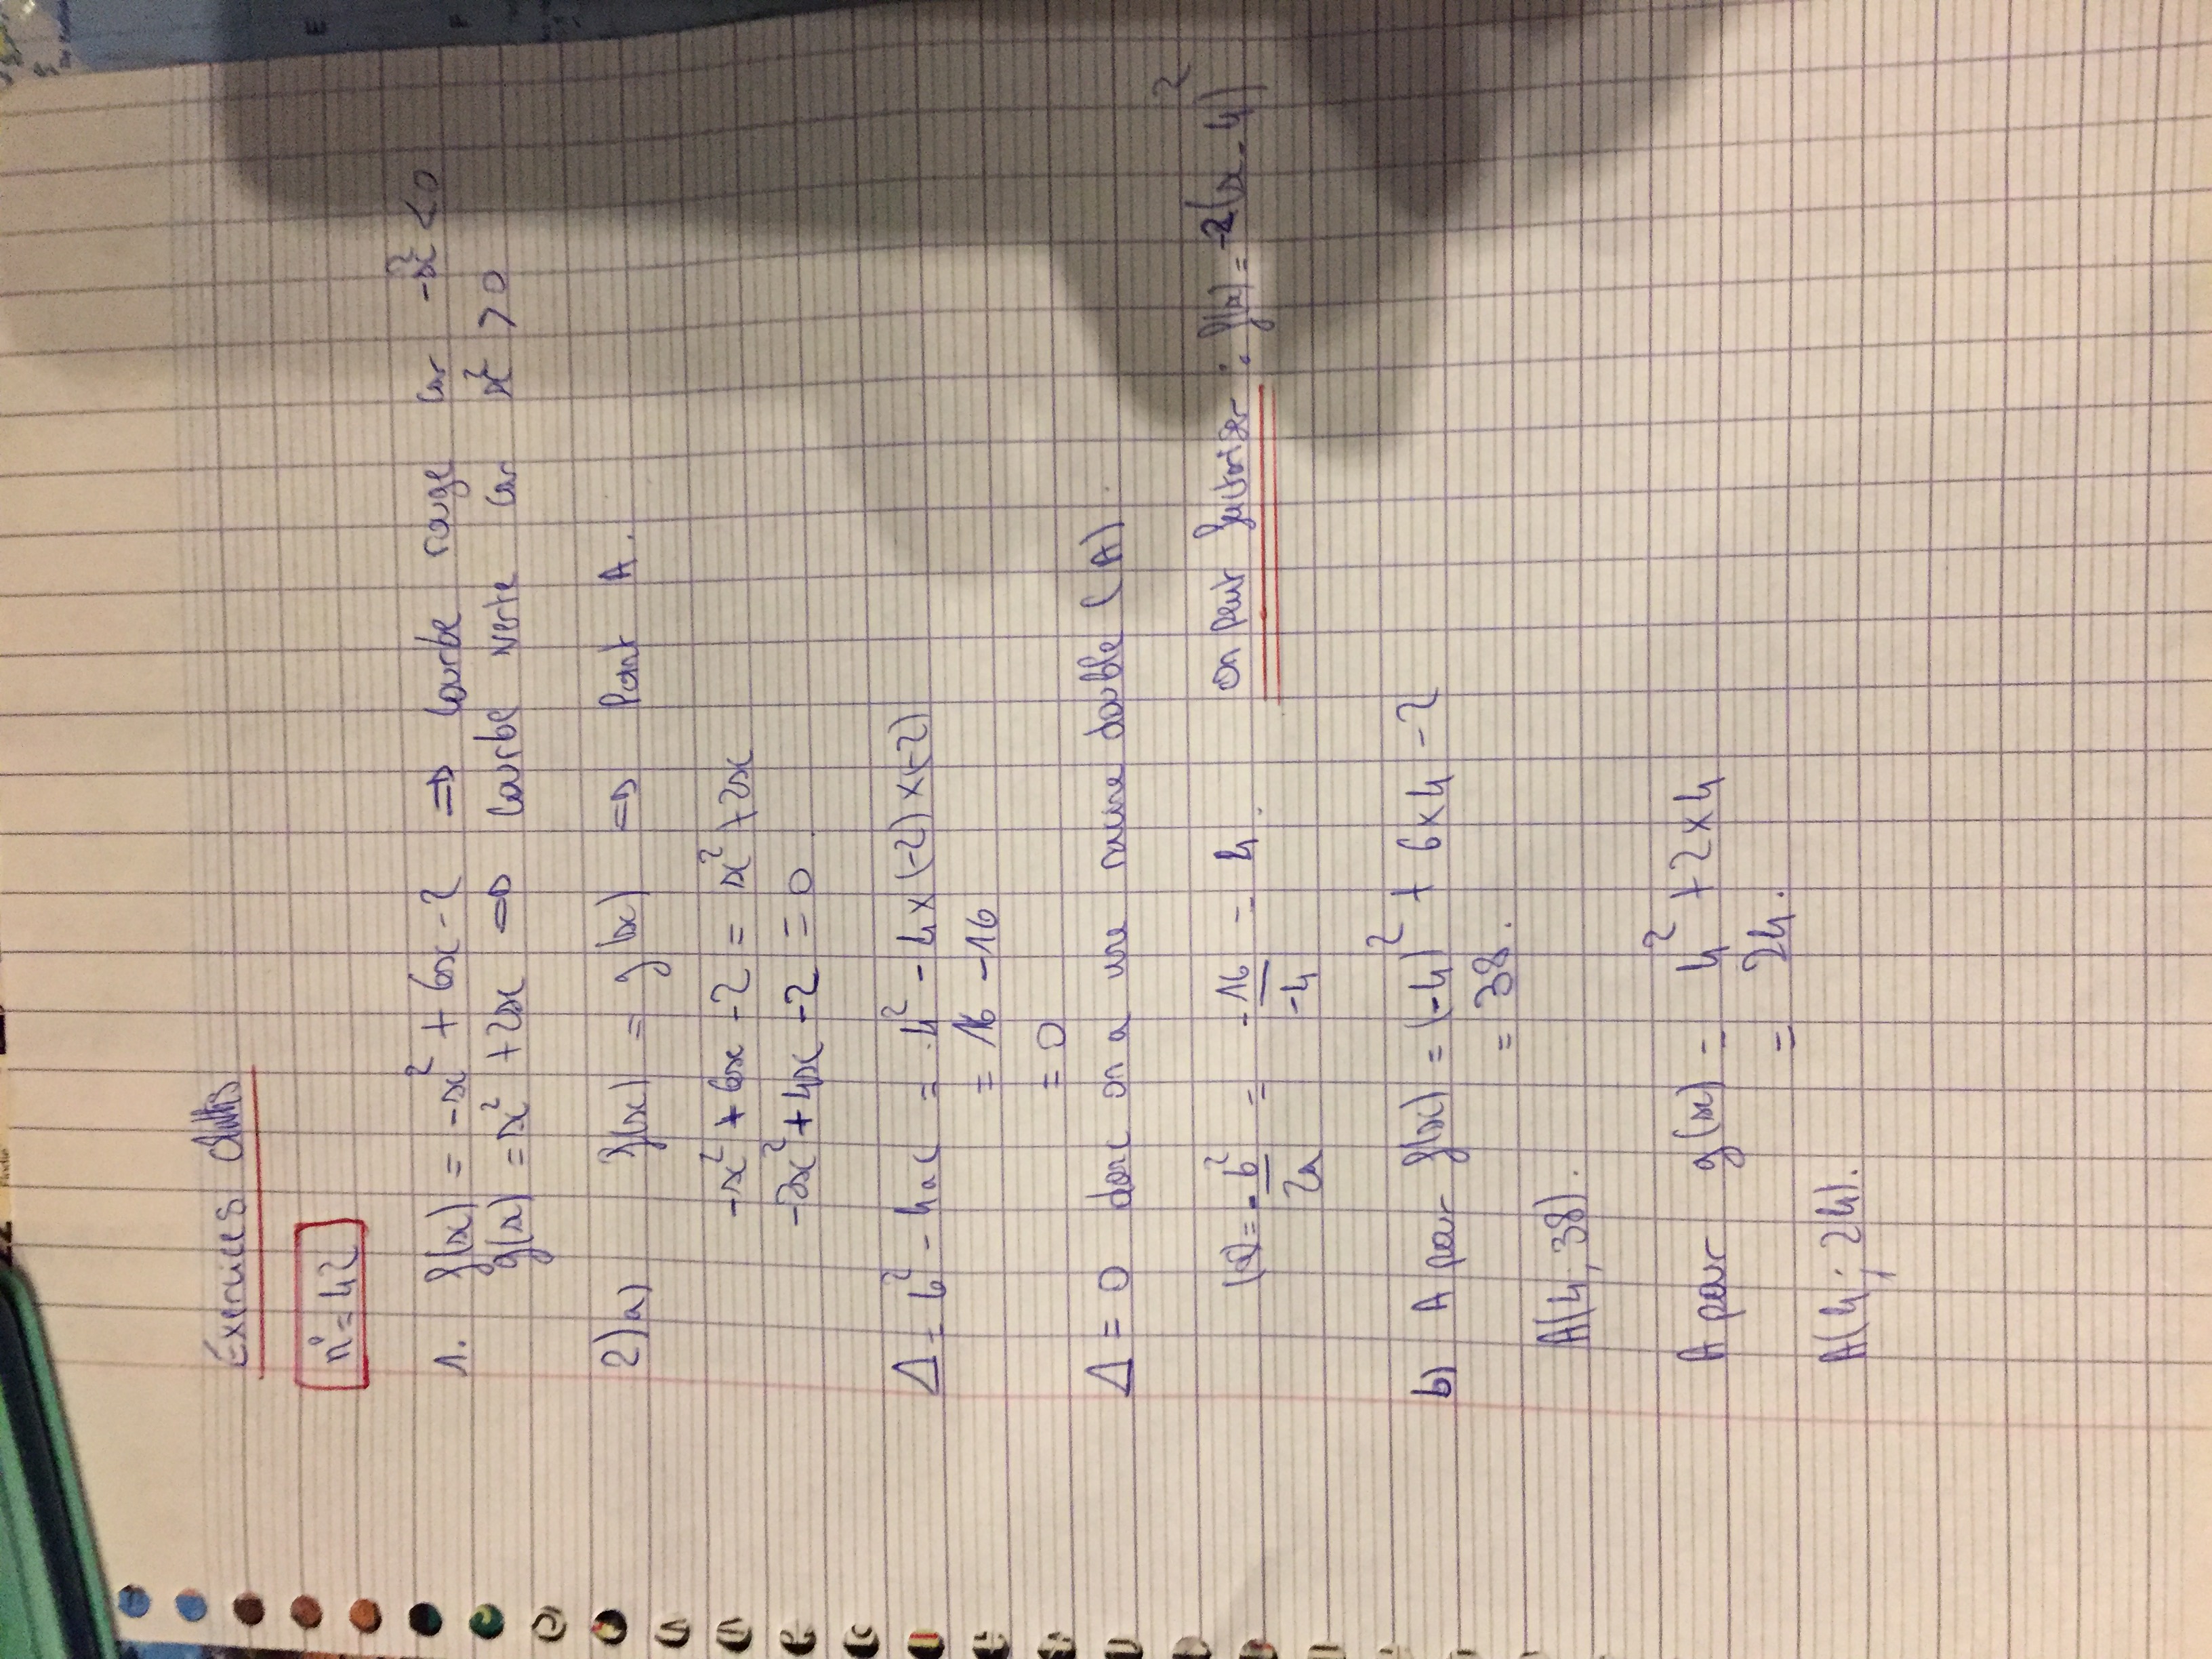 Elodie
Exercices Maths
n°= 42
1. f(x) = -x² + 6x - 2 => Courbe rouge car -x² < 0
g(x) = x² + 2x => Courbe verte car x² > 0
2) a) f(x) = g(x) => Point A.
-x² + 6x - 2 = x² + 2x
-2x² + 4x - 2 = 0
Δ = b² - 4ac = 4² - 4 x (-2) x (-2)
= 16 - 16
= 0
Δ = 0 donc on a une racine double (A).
= -b²/2a = -16/-4 = 4. On peut factoriser : f(x) = -2(x - 4)²
b) A pour f(x) = (-4)² + 6x4 - 2
= 38.
A(4; 38).
A pour g(x) = 4² + 2x4
= 24.
A(4; 24).